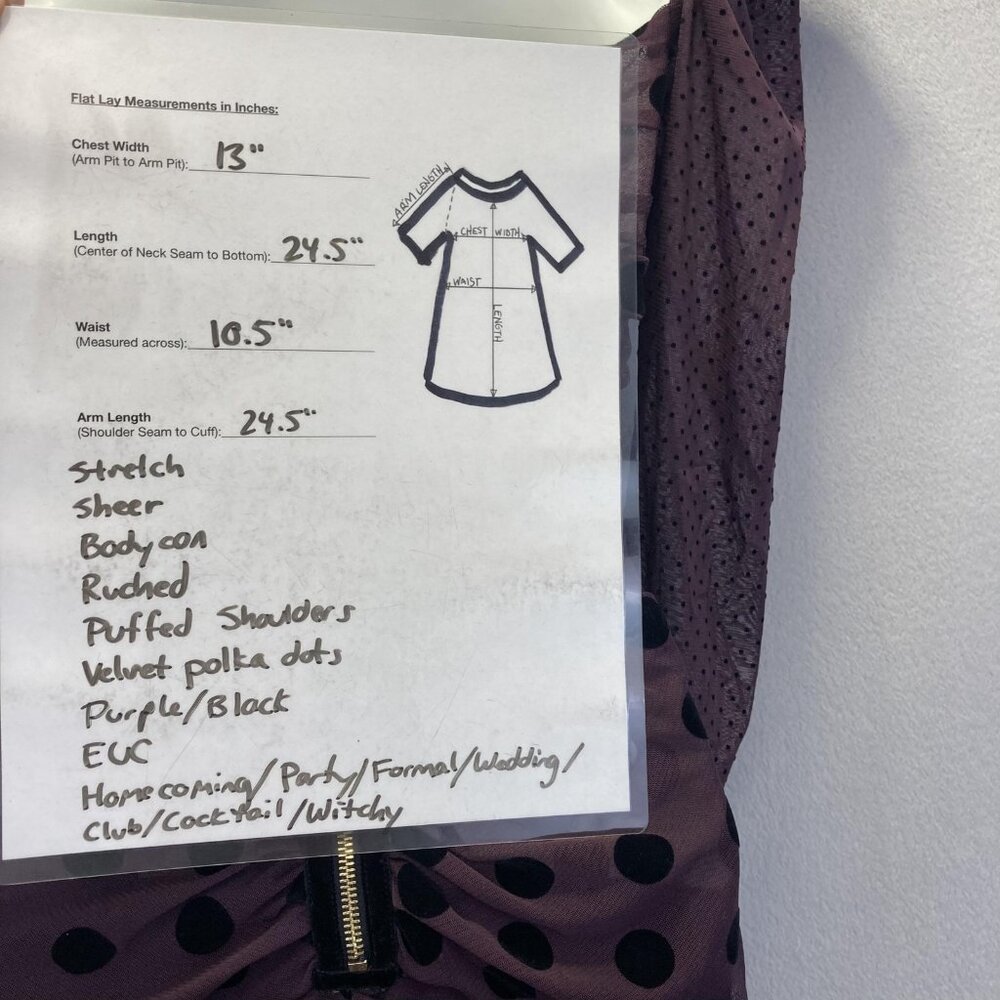 Flat Lay Measurements in Inches:
Chest Width
(Arm Pit to Arm Pit): 13"
Length
(Center of Neck Seam to Bottom): 24.5"
Waist
(Measured across): 10.5"
Arm Length
(Shoulder Seam to Cuff): 24.5"
ARM LENGTH
CHEST WIDTH
WAIST
LENGTH
Stretch
Sheer
Bodycon
Ruched
Puffed Shoulders
Velvet polka dots
Purple/Black
EUC
Homecoming/Party/Formal/Wedding/
Club/Cocktail/Witchy